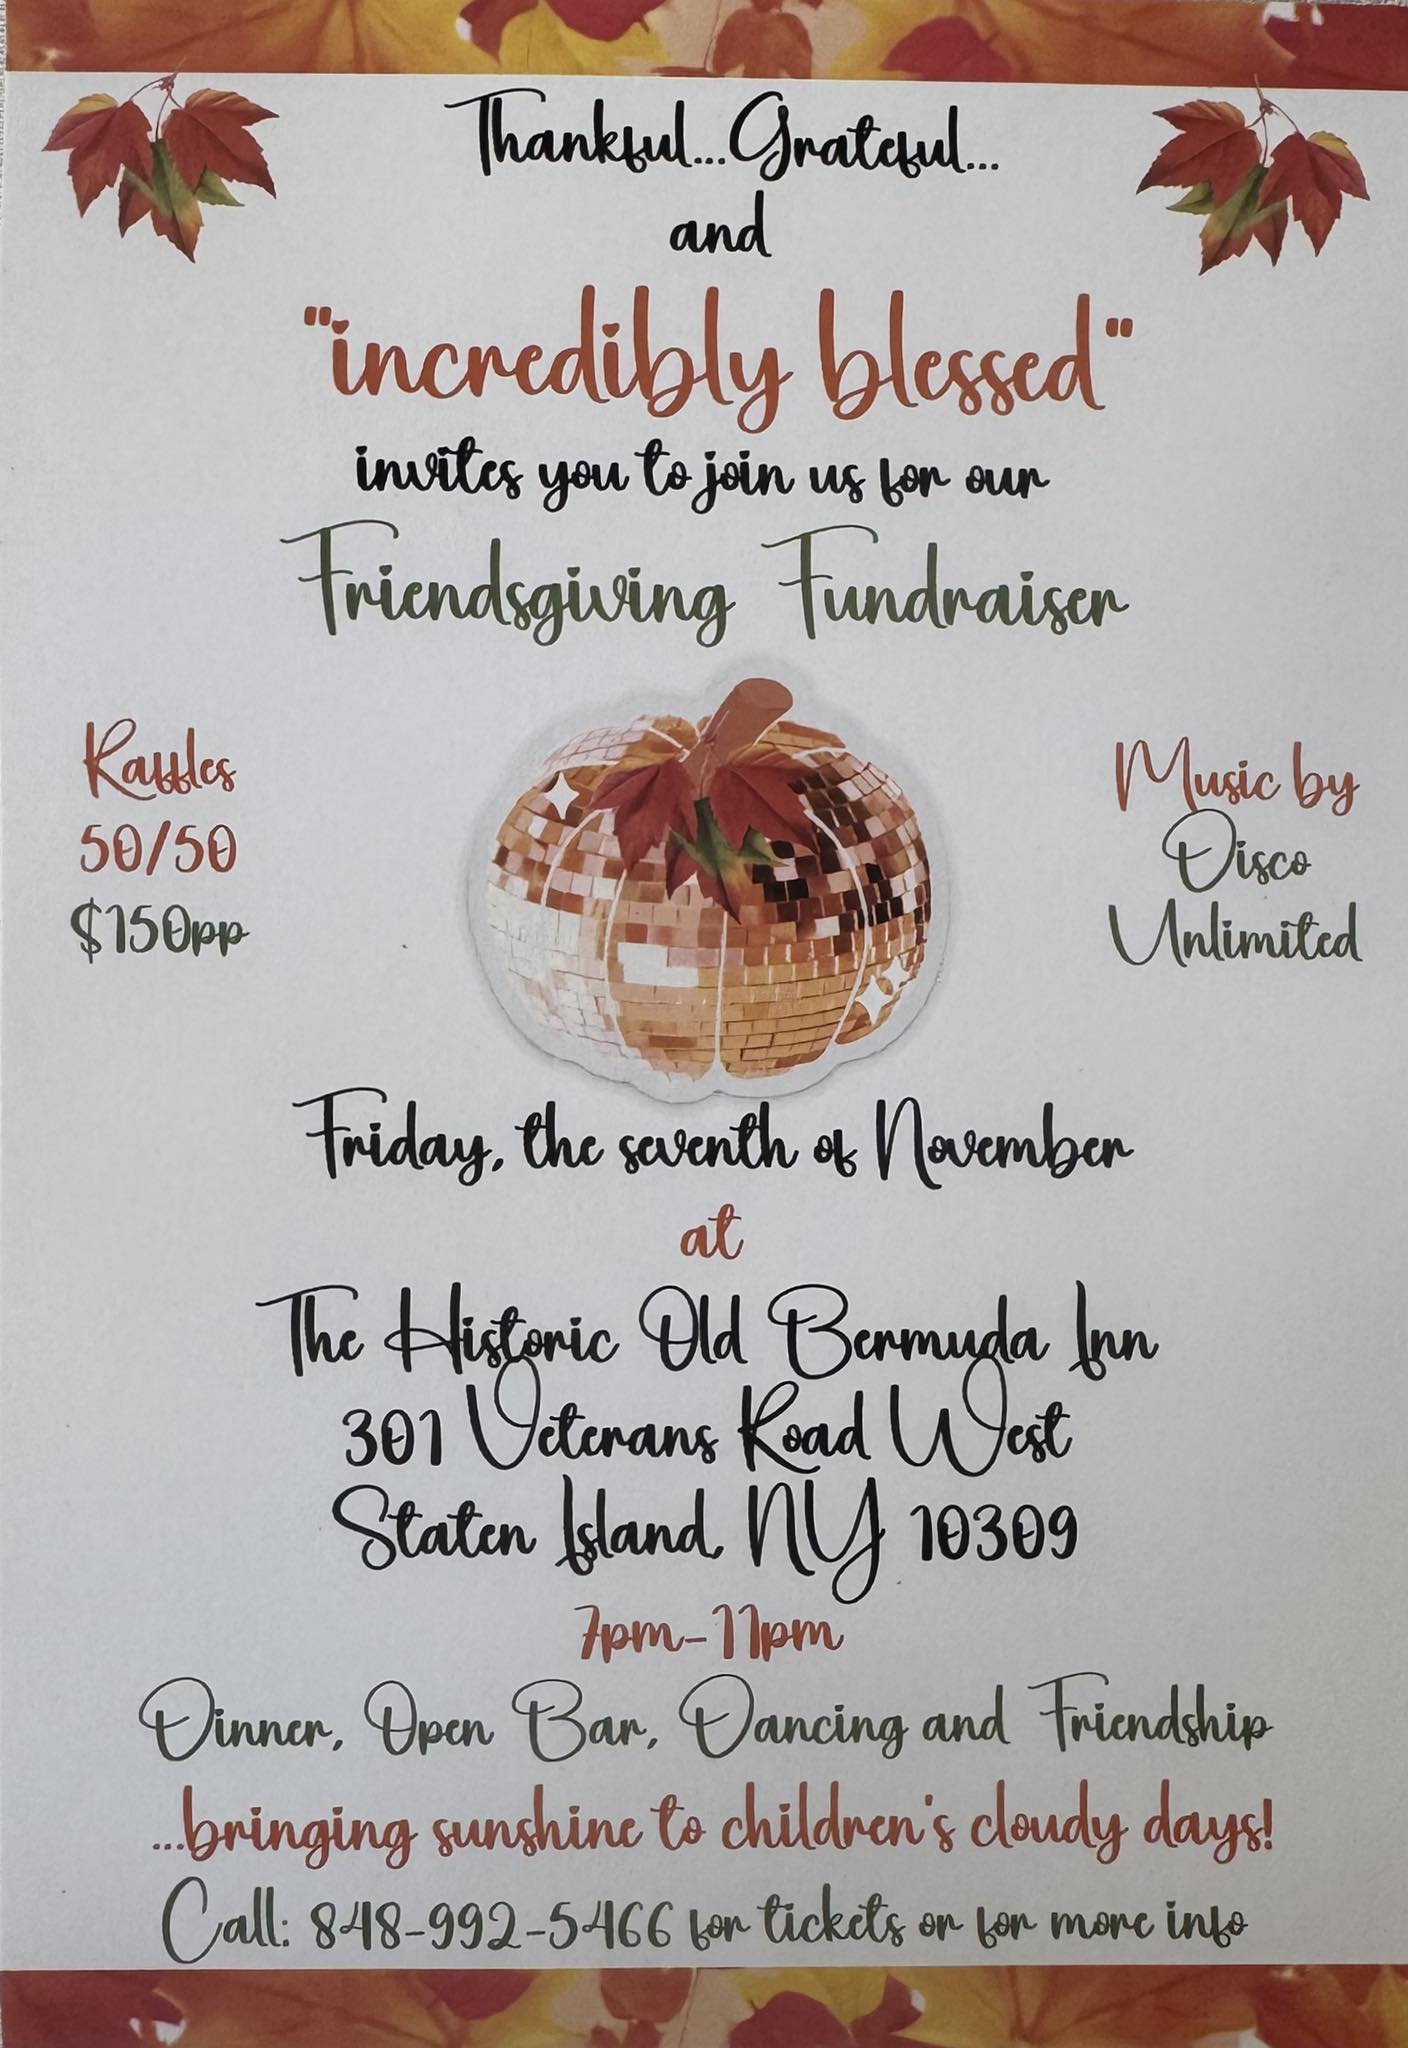 Thankful...Grateful...
and
"incredibly blessed"
invites you to join us for our
Friendsgiving Fundraiser
Raffles
50/50
$150pp
Music by
Disco
Unlimited
Friday, the seventh of November
at
The Historic Old Bermuda Inn
301 Veterans Road West
Staten Island, NY 10309
7pm-11pm
Dinner, Open Bar, Dancing and Friendship
...bringing sunshine to children's cloudy days!
Call: 848-992-5466 for tickets or for more info